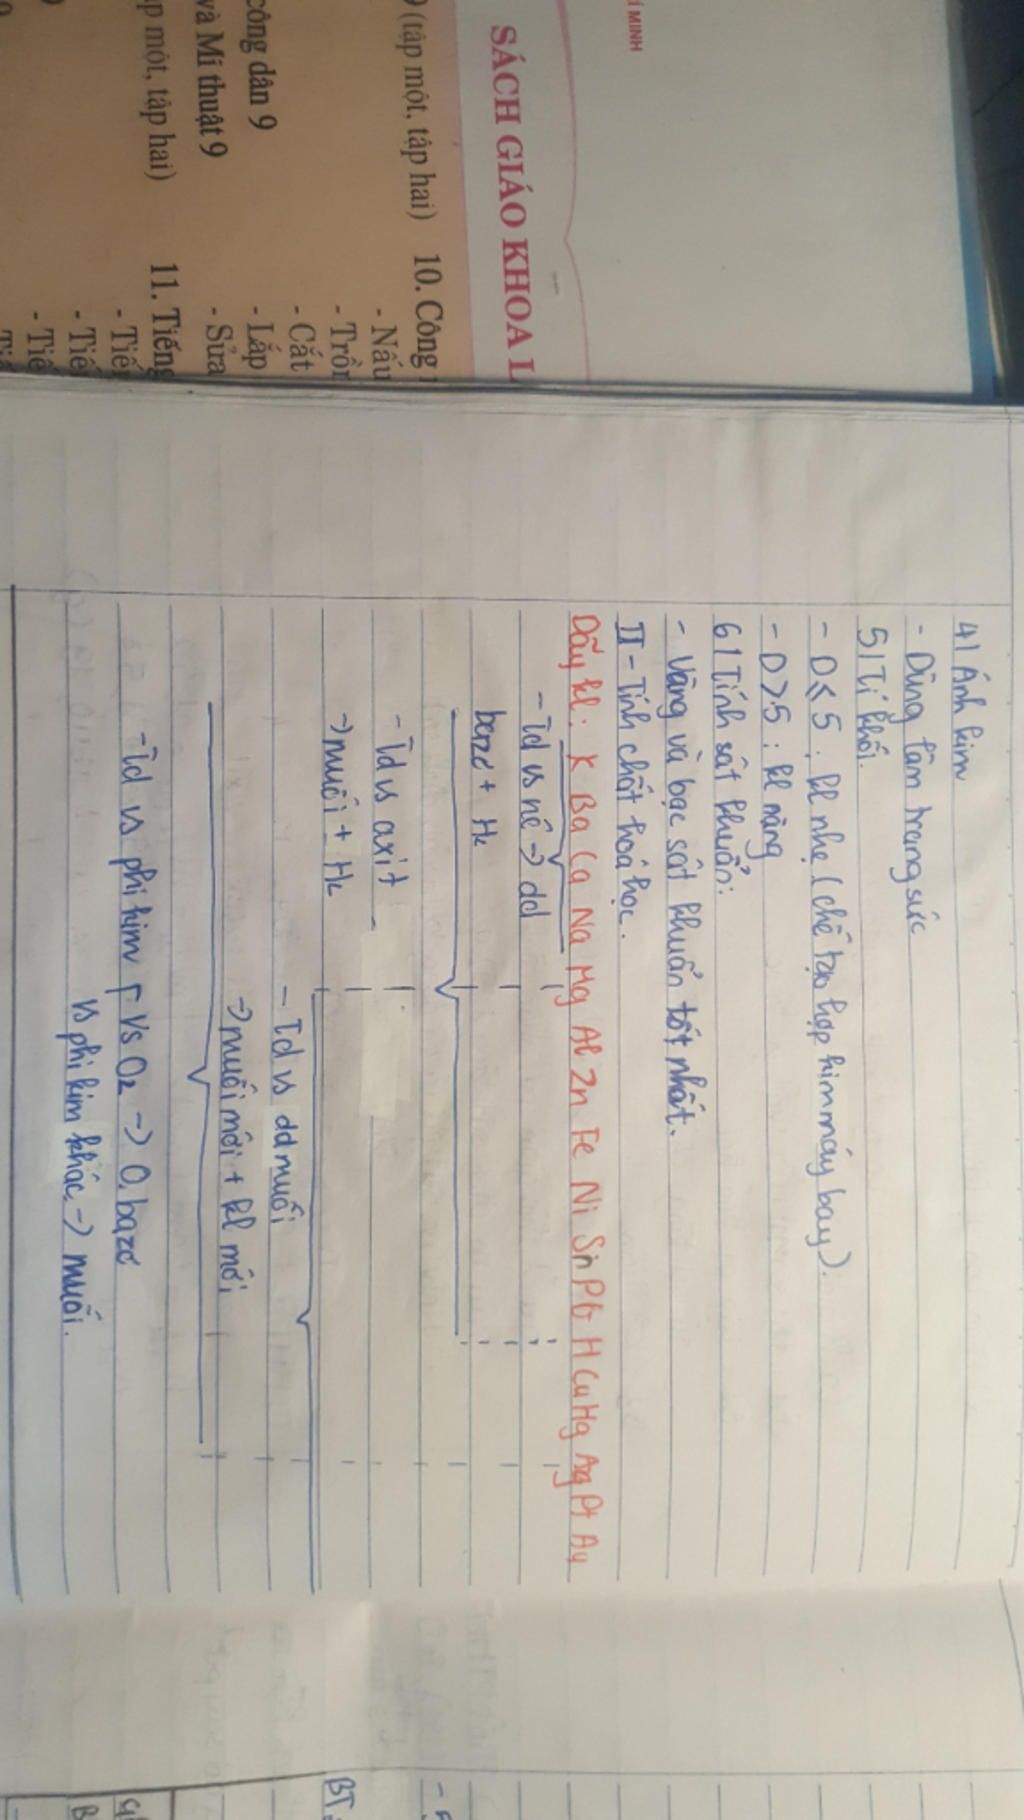 Í MINH
SÁCH GIÁO KHOA L
(tập một, tập hai) 10. Công
- Nấu
- Trồn
công dân 9 - Cắt
và Mĩ thuật 9 - Lắp
- Sửa
p một, tập hai) 11. Tiếng
- Tiế
- Tiế
- Tiế
4) Ánh kim
- Dùng làm trang sức
5) Tỉ khối.
- D ≤ 5 : kl nhẹ (chế tạo hợp kim máy bay).
- D > 5 : kl nặng
6) Tính sát khuẩn:
- Vàng và bạc sát khuẩn tốt nhất.
II - Tính chất hoá học.
Dãy kl: K Ba Ca Na Mg Al Zn Fe Ni Sn Pb H Cu Hg Ag Pt Au
- Td vs nc → dd
bazơ + H2
- Td vs axit
→ muối + H2
- Td vs dd muối
→ muối mới + kl mới
- Td vs phi kim vs O2 → O. bazơ
vs phi kim khác → muối.
BT: